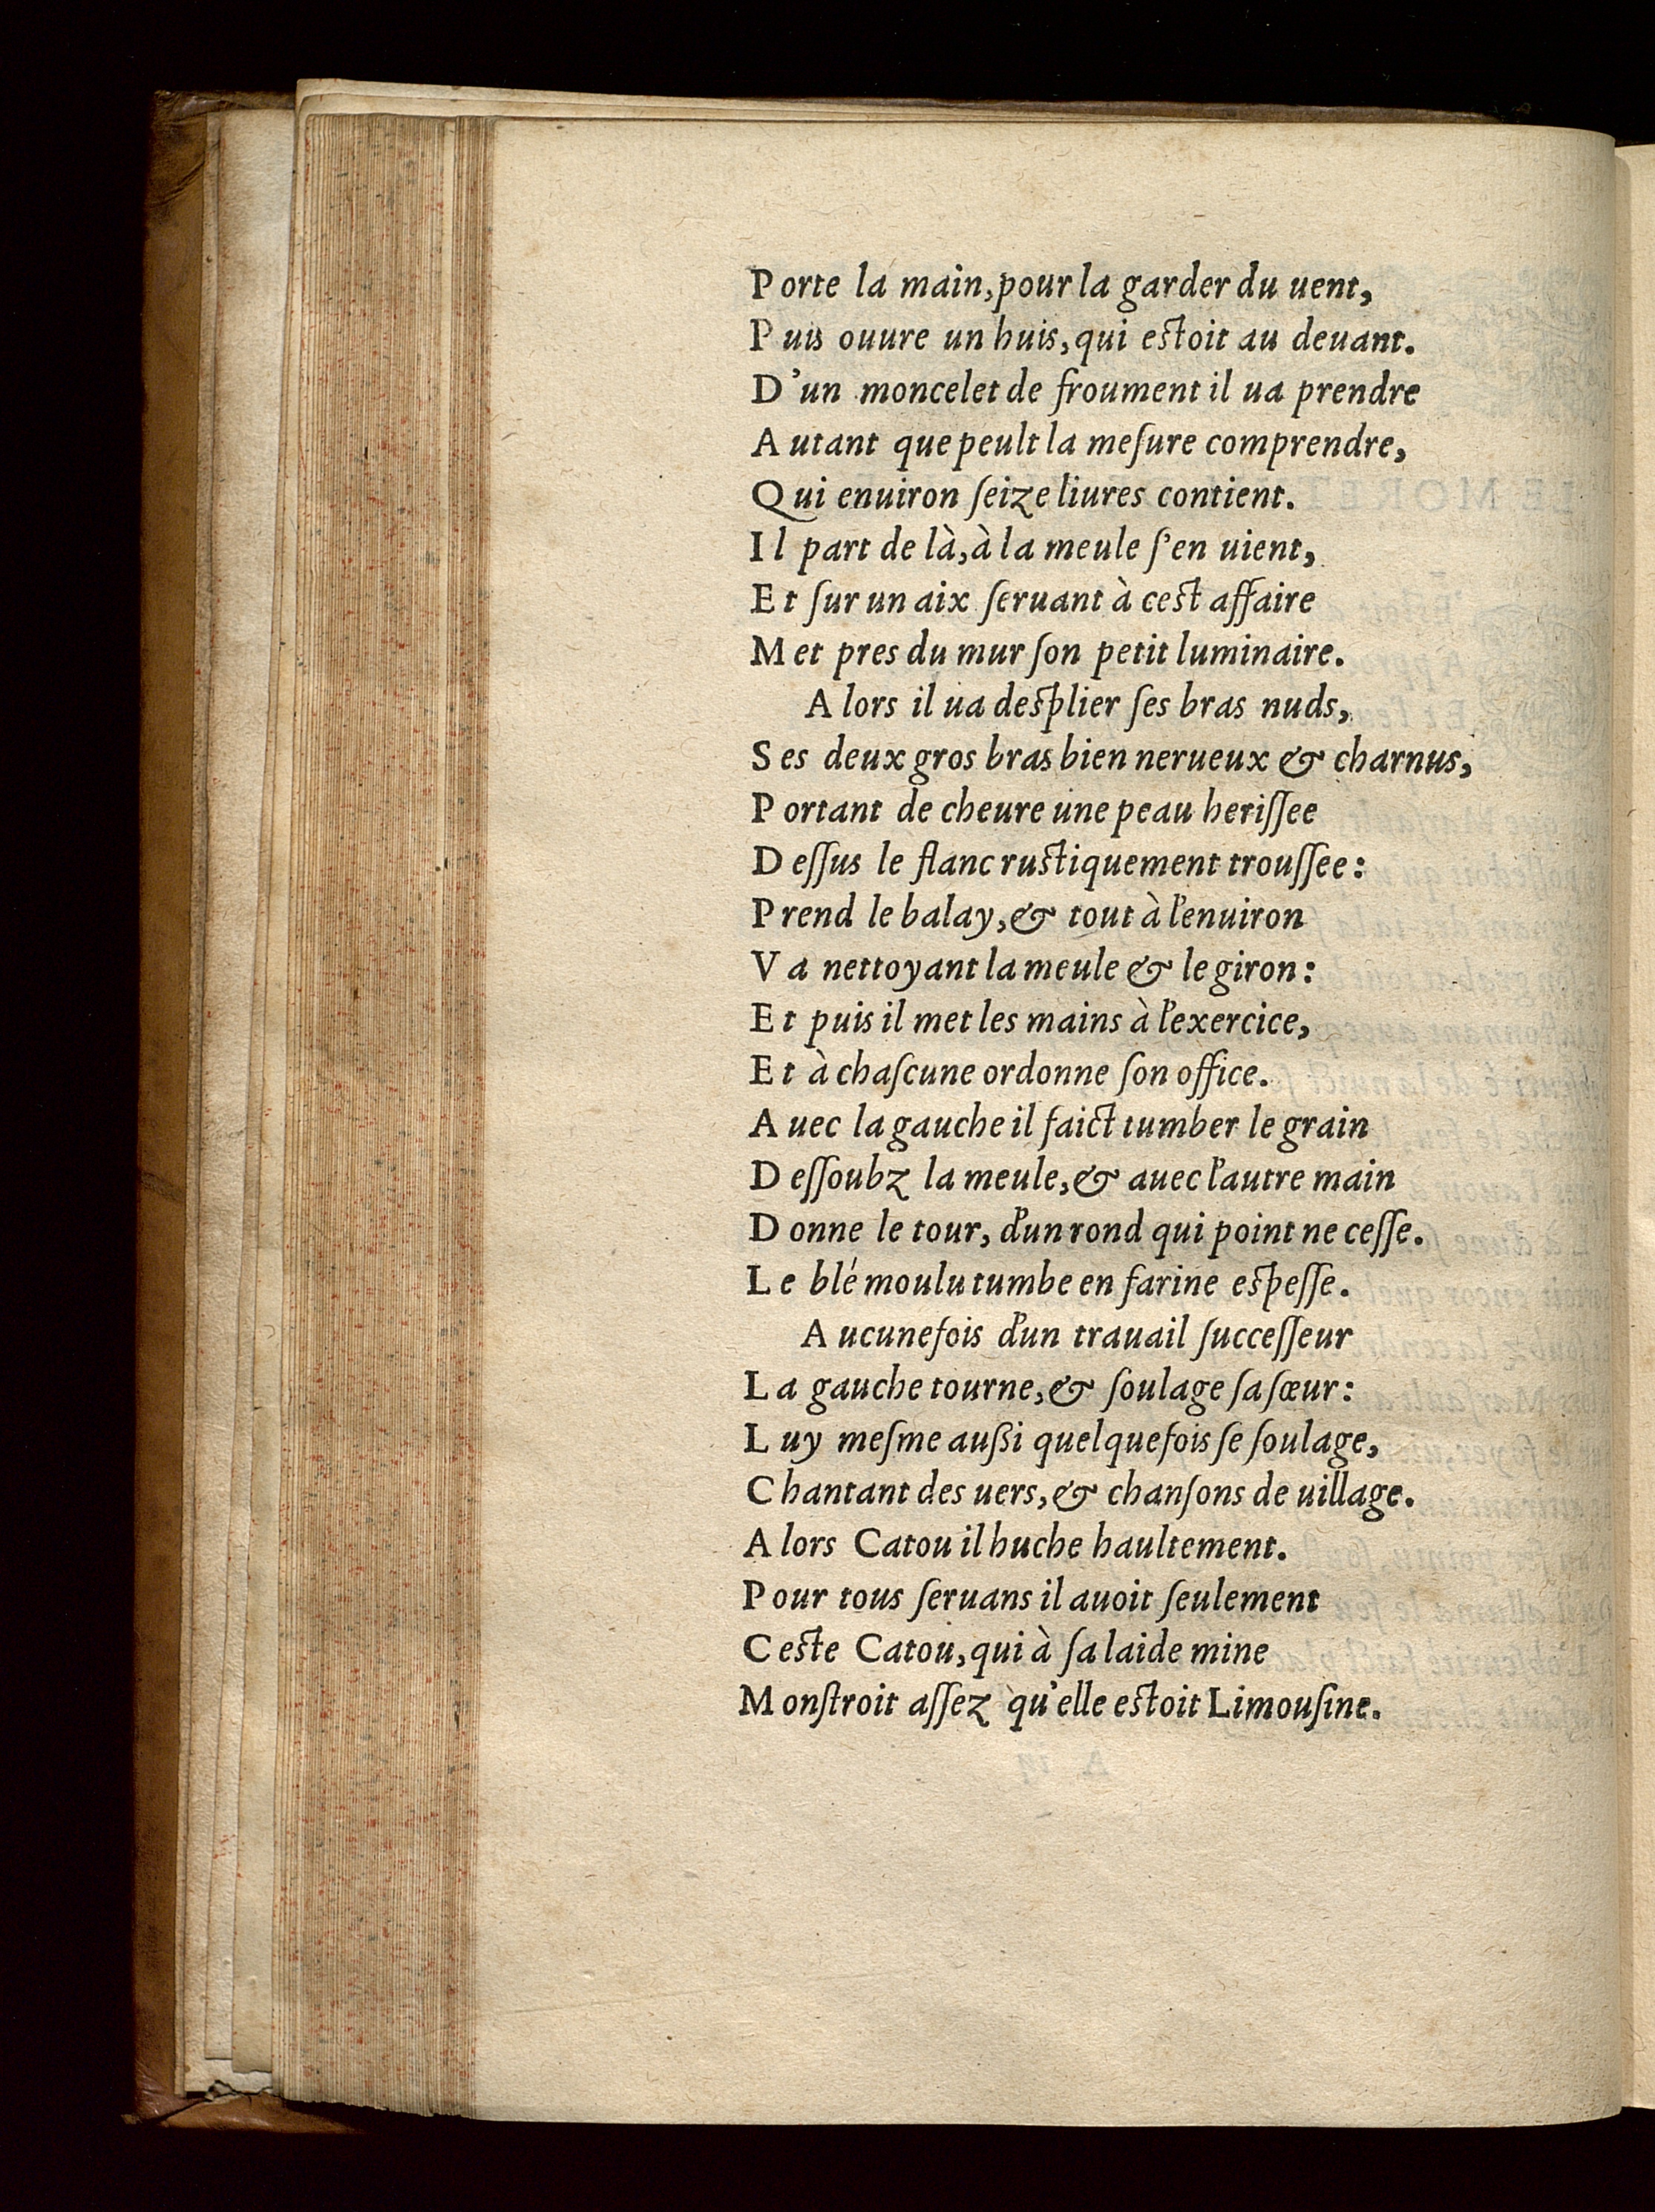 Porte la main, pour la garder du uent,
Puis ouure un huis, qui estoit au deuant.
D'un moncelet de froument il ua prendre
Autant que peult la meſure comprendre,
Qui enuiron ſeize liures contient.
Il part de là, à la meule ſ'en uient,
Et ſur un aix ſeruant à cest affaire
Met pres du mur ſon petit luminaire.
Alors il ua desplier ſes bras nuds,
Ses deux gros bras bien nerueux & charnus,
Portant de cheure une peau heriſſee
Deſſus le flanc rustiquement trouſſee:
Prend le balay, & tout à l'enuiron
Va nettoyant la meule & le giron:
Et puis il met les mains à l'exercice,
Et à chaſcune ordonne ſon office.
Auec la gauche il faict tumber le grain
Deſſoubz la meule, & auec l'autre main
Donne le tour, d'un rond qui point ne ceſſe.
Le blé moulu tumbe en farine espeſſe.
Aucunefois d'un trauail ſucceſſeur
La gauche tourne, & ſoulage ſa ſœur:
Luy meſme außi quelquefois ſe ſoulage,
Chantant des uers, & chanſons de uillage.
Alors Catou il huche haultement.
Pour tous ſeruans il auoit ſeulement
Ceste Catou, qui à ſa laide mine
Monſtroit aſſez qu'elle estoit Limouſine.